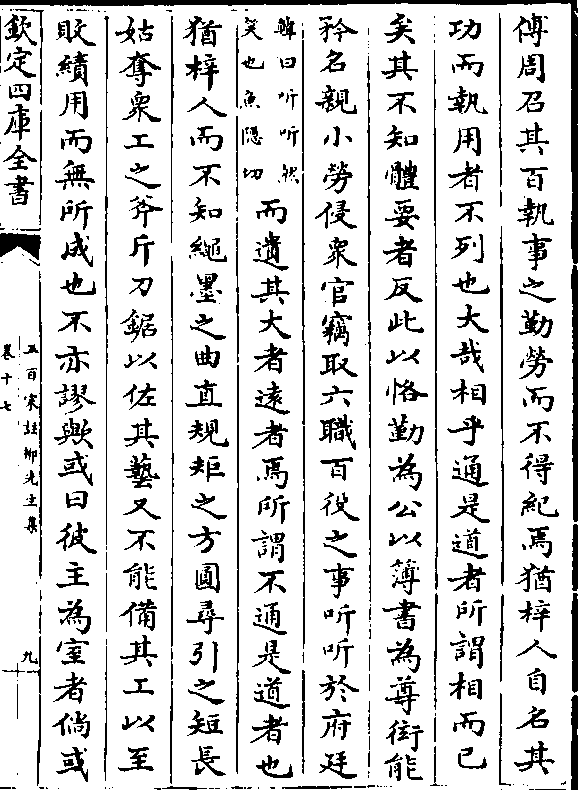 傅周召其百執事之勤勞而不得紀焉猶梓人自名其
功而執用者不列也大哉相乎通是道者所謂相而已
矣其不知體要者反此以恪勤為公以簿書為尊衒能
矜名親小勞侵衆官竊取六職百役之事听听於府廷
韓曰听听然
矣也魚隱切
而遺其大者遠者焉所謂不通是道者也
猶梓人而不知繩墨之曲直規矩之方圓尋引之短長
姑奪衆工之斧斤刀鋸以佐其藝又不能備其工以至
敗績用而無所成也不亦謬歟或曰彼主為室者倘或
欽定四庫全書
五百家註柳先生集
卷十七
九